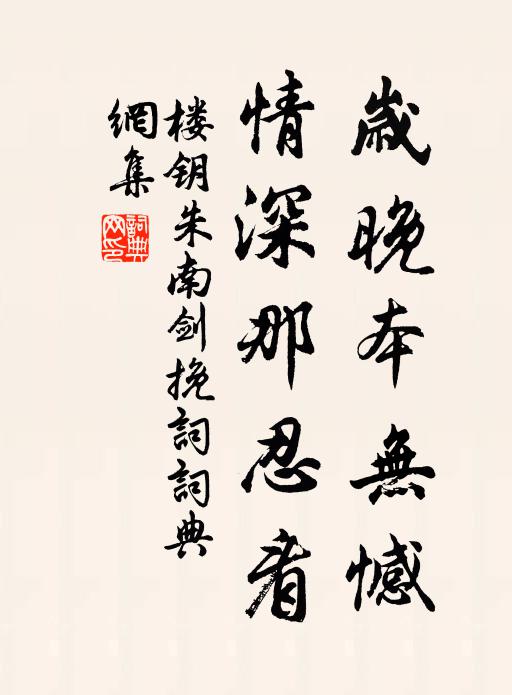 歳晚本無憾
情深那忍看
楼钥朱南剑挽詞詞典
網集
詞典
网印